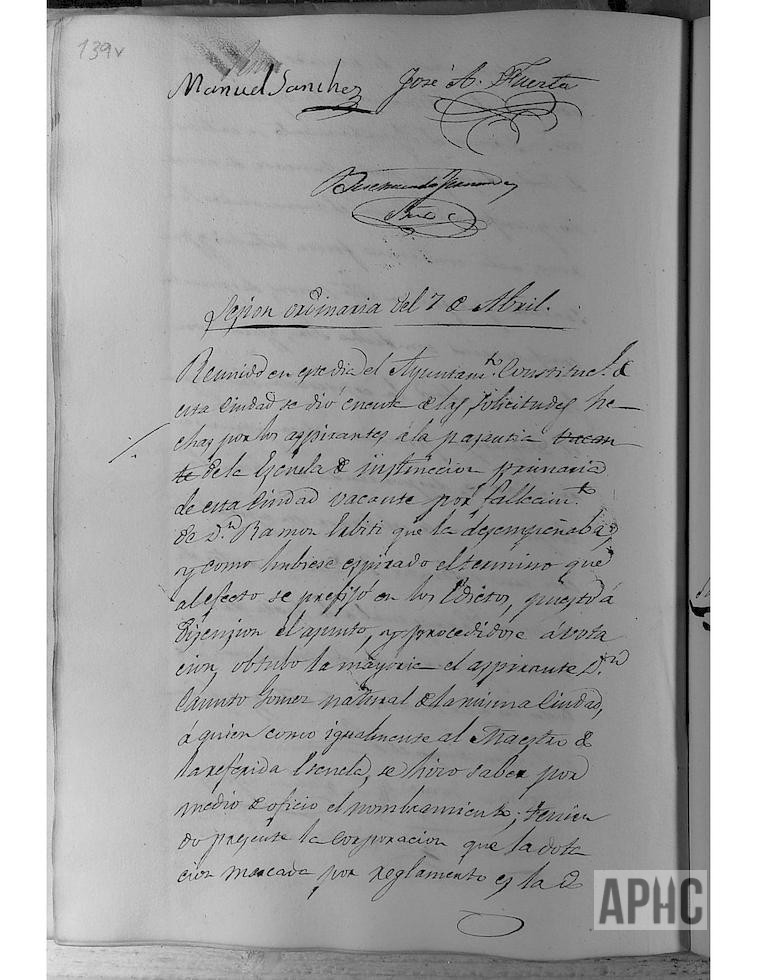 139v
Manuel Sanchez José A. Huerta
Sesion ordinaria del 7 de Abril.
Reunido en este dia el Ayuntamto. Constitucl. de
esta Ciudad se dió cuenta de las solicitudes he-
chas por los aspirantes á la pasantia vacan
te de la Escuela de instruccion primaria
de esta Ciudad vacante por fallecimto.
de Dn. Ramon que la desempeñaba,
y como hubiese espirado el termino que
al efecto se prefijó en los Edictos, puesto á
discusion el asunto, y procedidose á vota
cion, obtubo la mayoria el aspirante Dn.
Gomez natural de la misma Ciudad,
á quien como igualmente al Maestro de
la referida Escuela, se hizo saber por
medio de oficio el nombramiento; tenien
do presente la corporacion que la dota
cion marcada por reglamento es la de
APHC